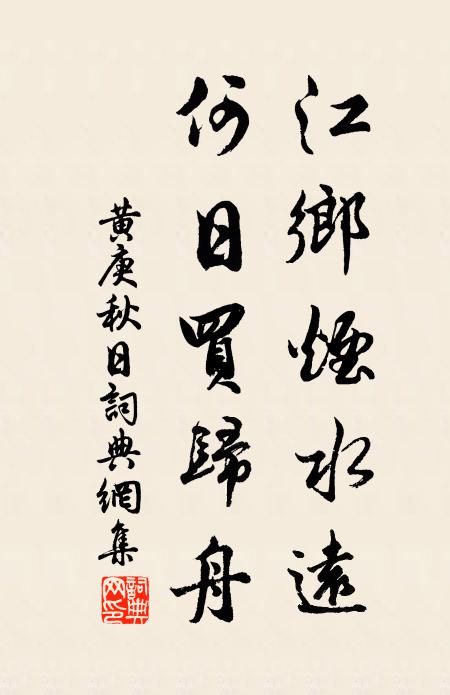 江鄉煙水遠
何日買歸舟
黃庚秋日詞典網集
詞典網印